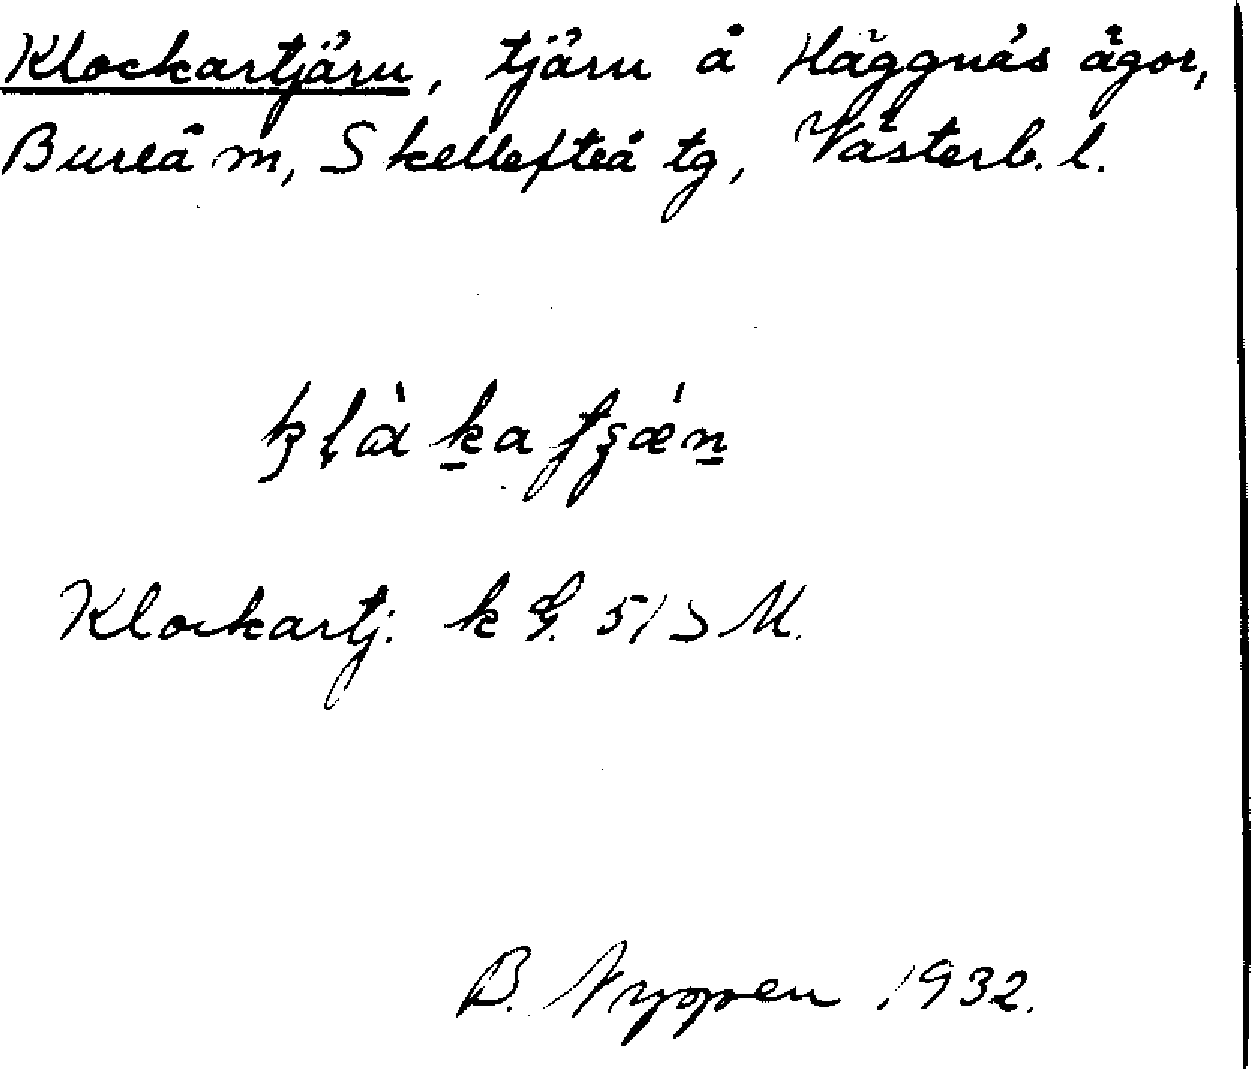 Klockartjärn, tjärn å Häggnäs ägor,
Bureå m, Skellefteå tg, Västerb. l.
Klockartj. k G. 5/5 M.
B. Nygren 1932.